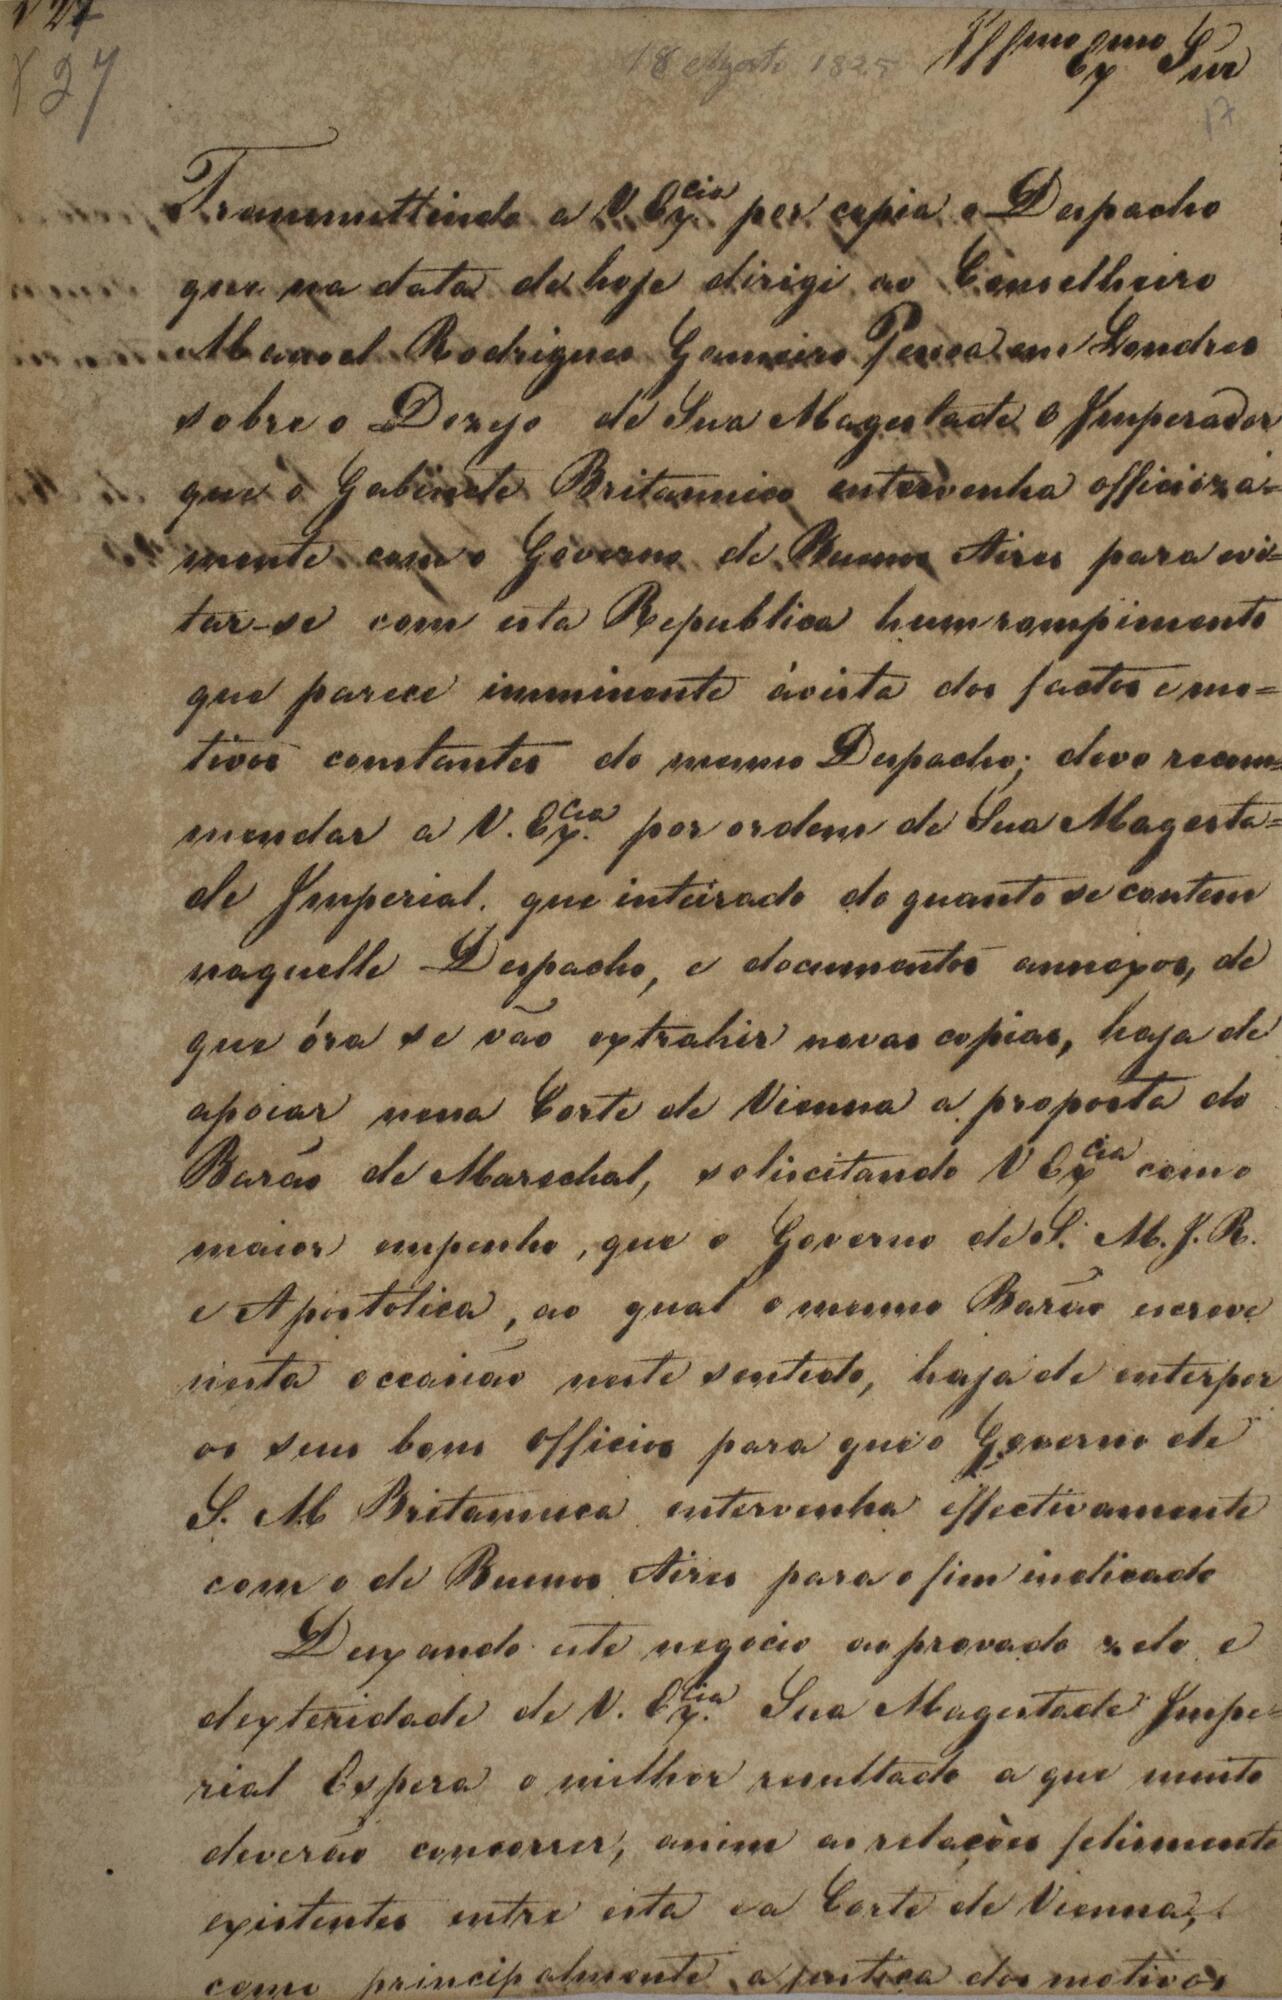 127
127
18 Agosto 1825
Illmo Exmo Snr
17
Transmittindo a V Excia per copia o Despacho
que na data de hoje dirigi ao Conselheiro
Manoel Rodrigues Gameiro Pessoa em Londres
sobre o Dezejo de Sua Magestade o Imperador
que o Gabinete Britannico entervenha officioza-
mente com o Governo de Buenos Aires para evi=
tar-se com esta Republica hum rompimento
que parece imminente ávista dos factos e mo=
tivos constantes do mesmo Despacho; devo recom=
mendar a V. Excia. por ordem de Sua Magesta=
de Imperial. que inteirado do quanto se contem
naquelle Despacho, e documentos annexos, de
que óra se vão extrahir novas copias, haja de
apoiar nessa Corte de Vienna a proposta do
Barão de Mareschal, solicitando V Excia com o
maior empenho, que o Governo de S. M. J. R.
e Apostolica, ao qual o mesmo Barão escreve
nesta occasião neste sentido, haja de enterpor
os seus bons officios para que o Governo de
S. M Britannica entervenha effectivamente
com o de Buenos Aires para o fim indicado
Deixando este negocio ao provado zelo e
dexteridade de V. Excia. Sua Magestade Impe=
rial Espera o milhor resultado a que muito
deverão concorrer, assim as relações felismente
existentes entre esta e a Corte de Vienna,
como principalmente a justica dos motivos